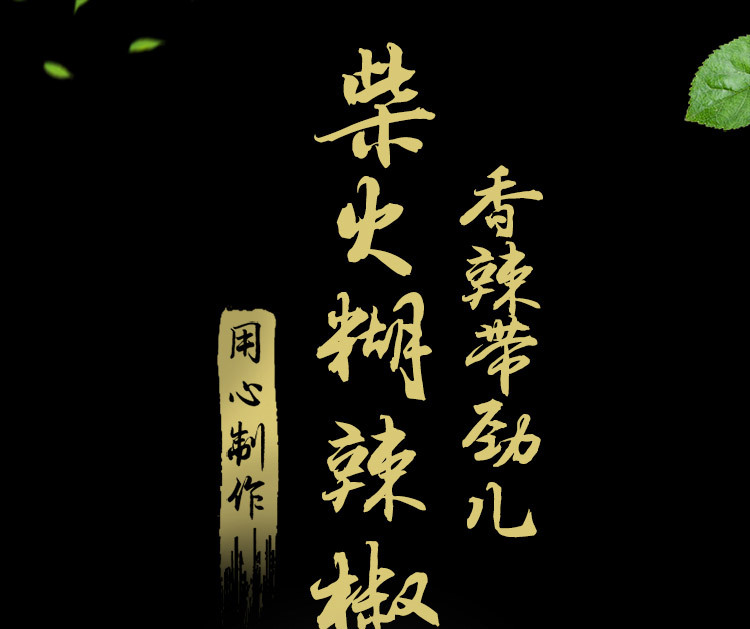 香辣带劲儿
柴火糊辣椒
用心制作